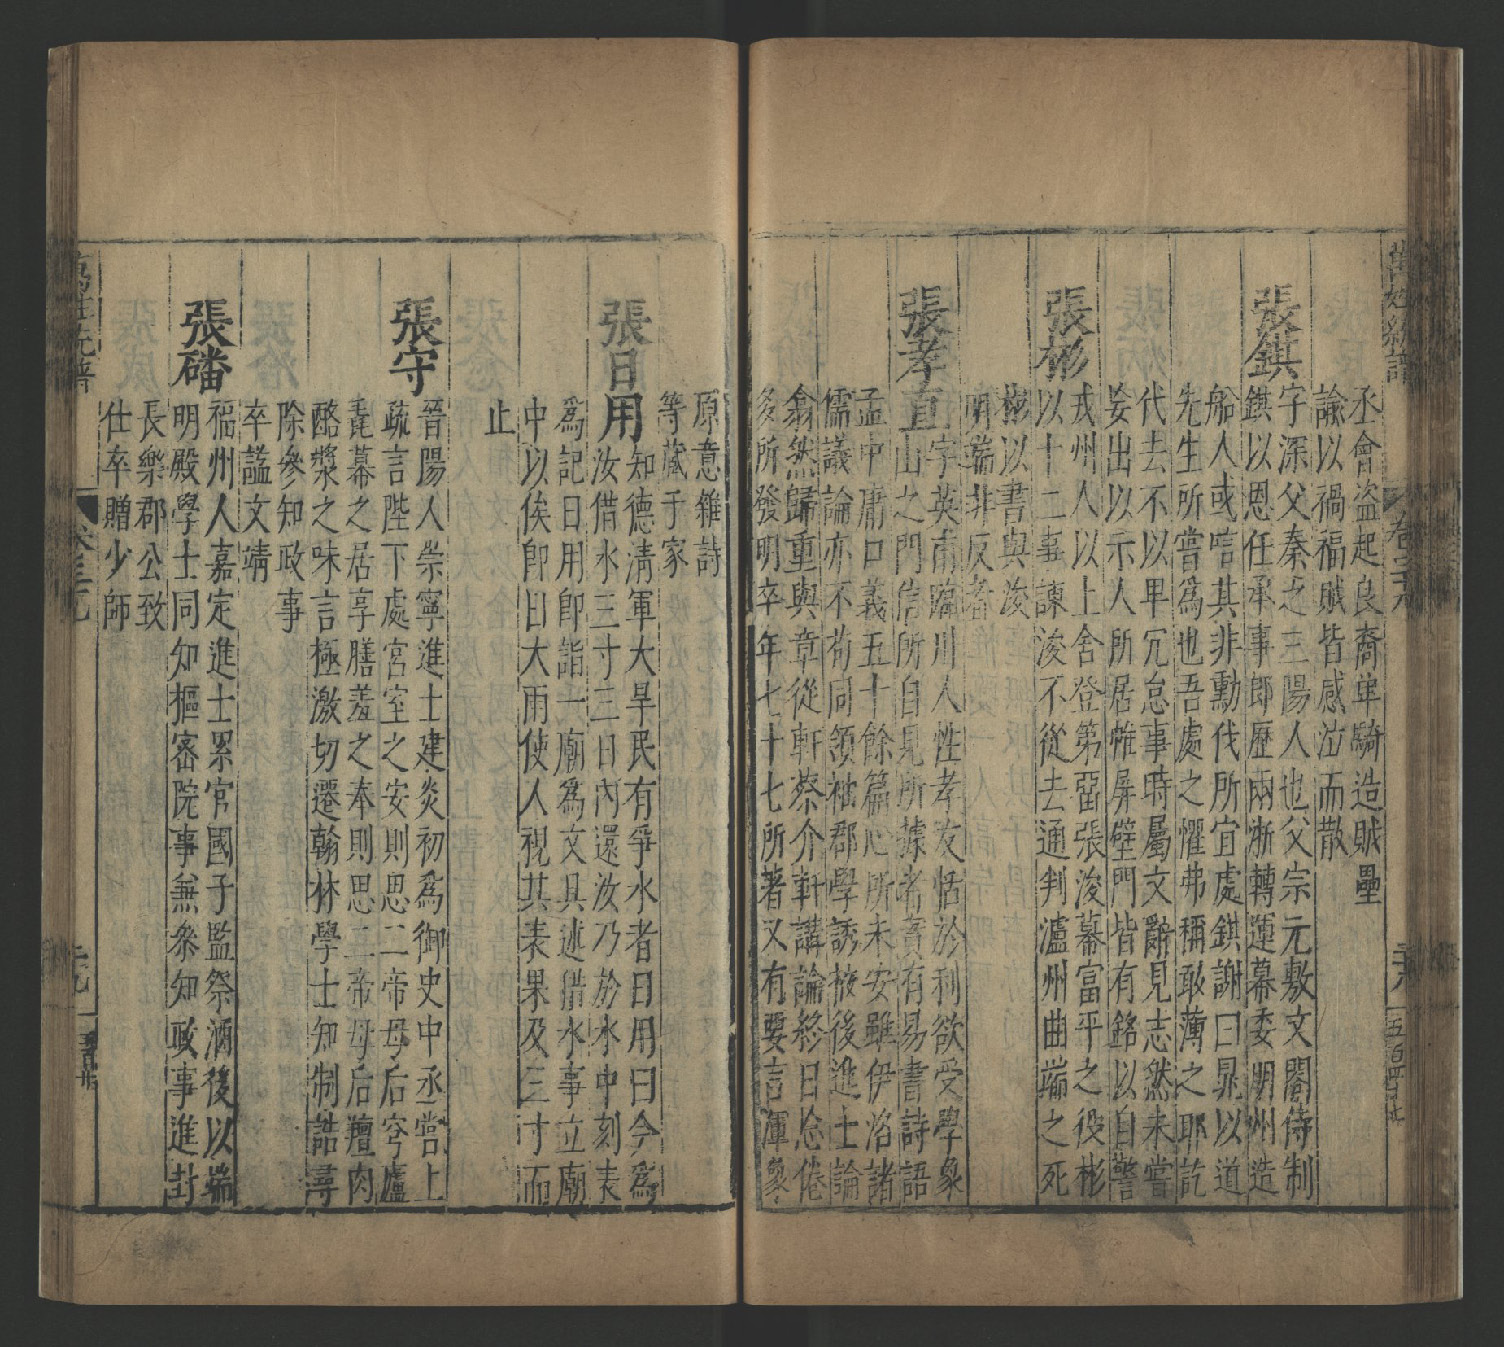 萬姓統譜
卷三十八
丞會盜起良裔单騎造賊壘
諭以禍福賊皆感泣而散
張鉷
字深父秦之三陽人也父宗元敷文閣侍制
鉷以恩任承事郎歷兩浙轉運幕委明州造
船人或唁其非勳伐所宜處鉷謝曰晁以道
先生所嘗爲也吾處之懼弗稱敢薄之耶訖
代去不以卑冗怠事時屬文辭見志然未嘗
妄出以示人所居帷屏壁門皆有銘以自警
張彬
戎州人以上舍登第嚚張浚幕富平之役彬
以十二事諫浚不從去通判瀘州曲端之死
彬以書與浚
明端非反者
張孝直
字英甫臨川人性孝友恬於利欲受學象
山之門信所自見所據者實有易書詩語
孟中庸口義五十餘篇心所未安雖伊洛諸
儒議論亦不苟同領袖郡學誘掖後進士論
翕然歸重與章從軒蔡介軒講論終日忘倦
多所發明卒年七十七所著又有要言渾象
原意雜詩
等藏于家
張日用
知德清軍大旱民有爭水者日用曰今爲
汝借水三寸三日內還汝乃於水中刻表
爲記日用卽詣一廟爲文具述借水事立廟
中以俟卽日大雨使人視其表果及三寸而
止
張守
晉陽人崇寧進士建炎初爲御史中丞嘗上
疏言陛下處宮室之安則思二帝母后穹廬
毳幕之居享膳羞之奉則思二帝母后羶肉
酪漿之味言極激切遷翰林學士知制誥尋
除參知政事
卒諡文靖
張磻
福州人嘉定進士累官國子監祭酒後以端
明殿學士同知樞密院事無參知政事進封
長樂郡公致
仕卒贈少師
萬姓統譜
卷三十九